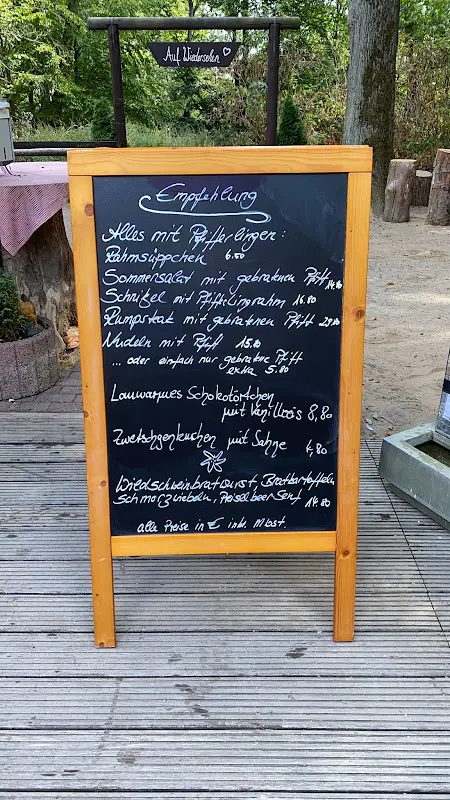 Auf Wiedersehen
Empfehlung
Alles mit Pfifferlingen:
Rahmsüppchen 6.50
Sommersalat mit gebratenen Pfiff 14.80
Schnitzel mit Pfifferlingrahm 16.80
Rumpsteak mit gebratenen Pfiff 29.80
Nudeln mit Pfiff 15.80
... oder einfach nur gebratene Pfiff
extra 5.80
Lauwarmes Schokotörtchen
mit Vanilleeis 8,80
Zwetschgenkuchen mit Sahne 4,80
Wildschweinbratwurst, Bratkartoffeln
Schmorzwiebeln, Preiselbeer Senf 14.80
alle Preise in € inkl. Mwst.